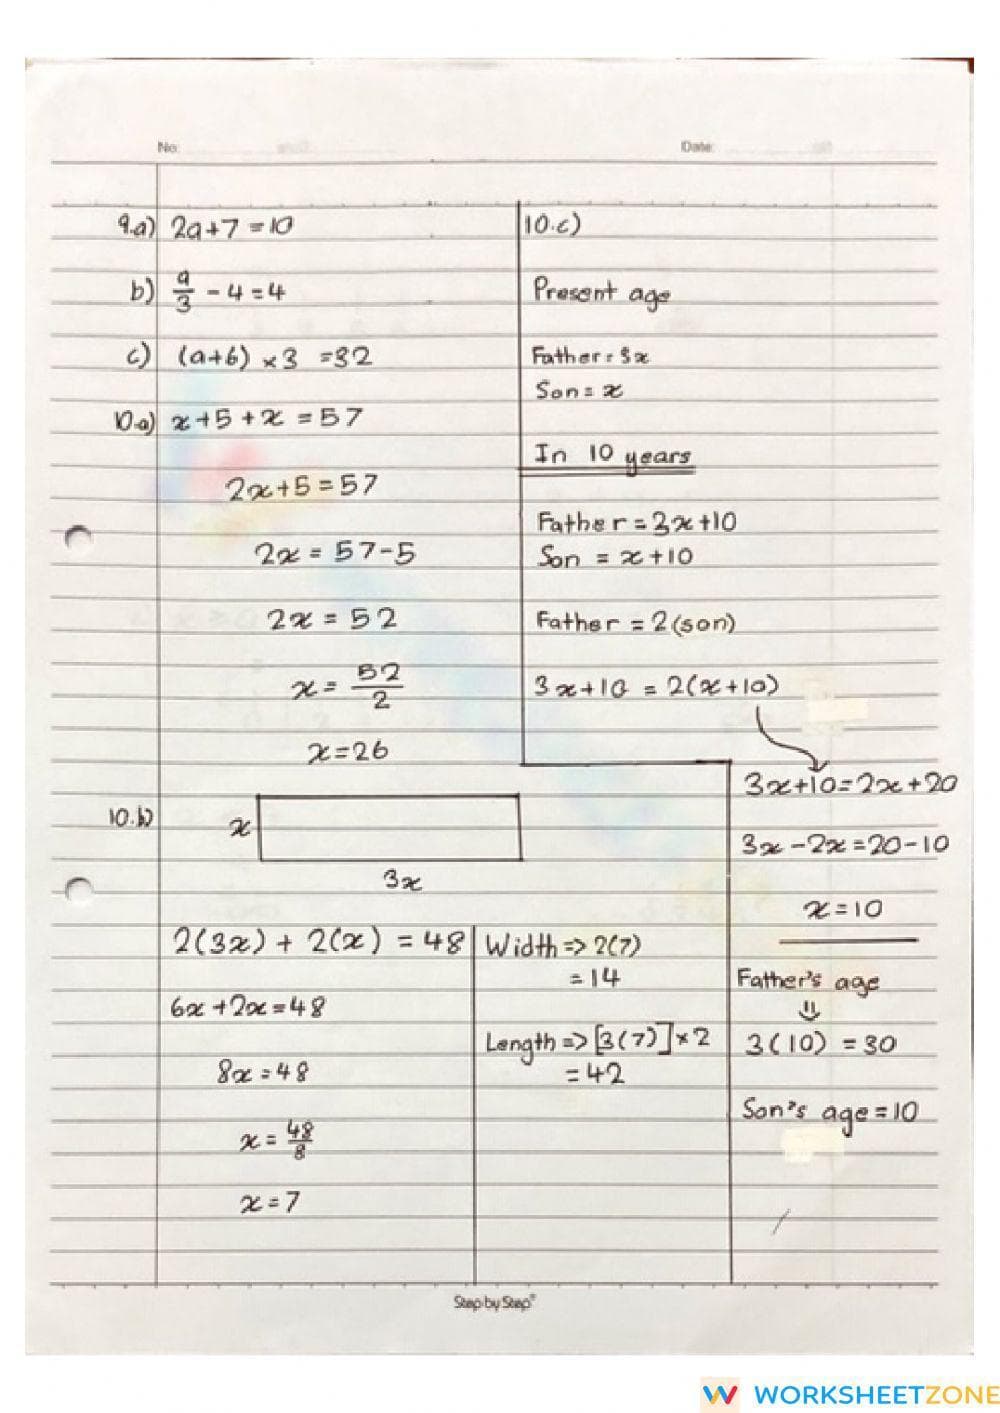 No:
Date:
9.a) 2a+7=10
b) a/3 - 4 = 4
c) (a+6) × 3 = 32
10.a) x+5+x = 57
2x+5 = 57
2x = 57-5
2x = 52
x = 52/2
x = 26
10.b)
x
3x
2(3x) + 2(x) = 48
6x+2x=48
8x=48
x = 48/8
x = 7
Width => 2(7)
= 14
Length => [3(7)]×2
= 42
10.c)
Present age
Father = 3x
Son = x
In 10 years
Father = 3x+10
Son = x+10
Father = 2(son)
3x+10 = 2(x+10)
3x+10=2x+20
3x-2x=20-10
x=10
Father's age
3(10) = 30
Son's age = 10
Step by Step®
WORKSHEETZONE